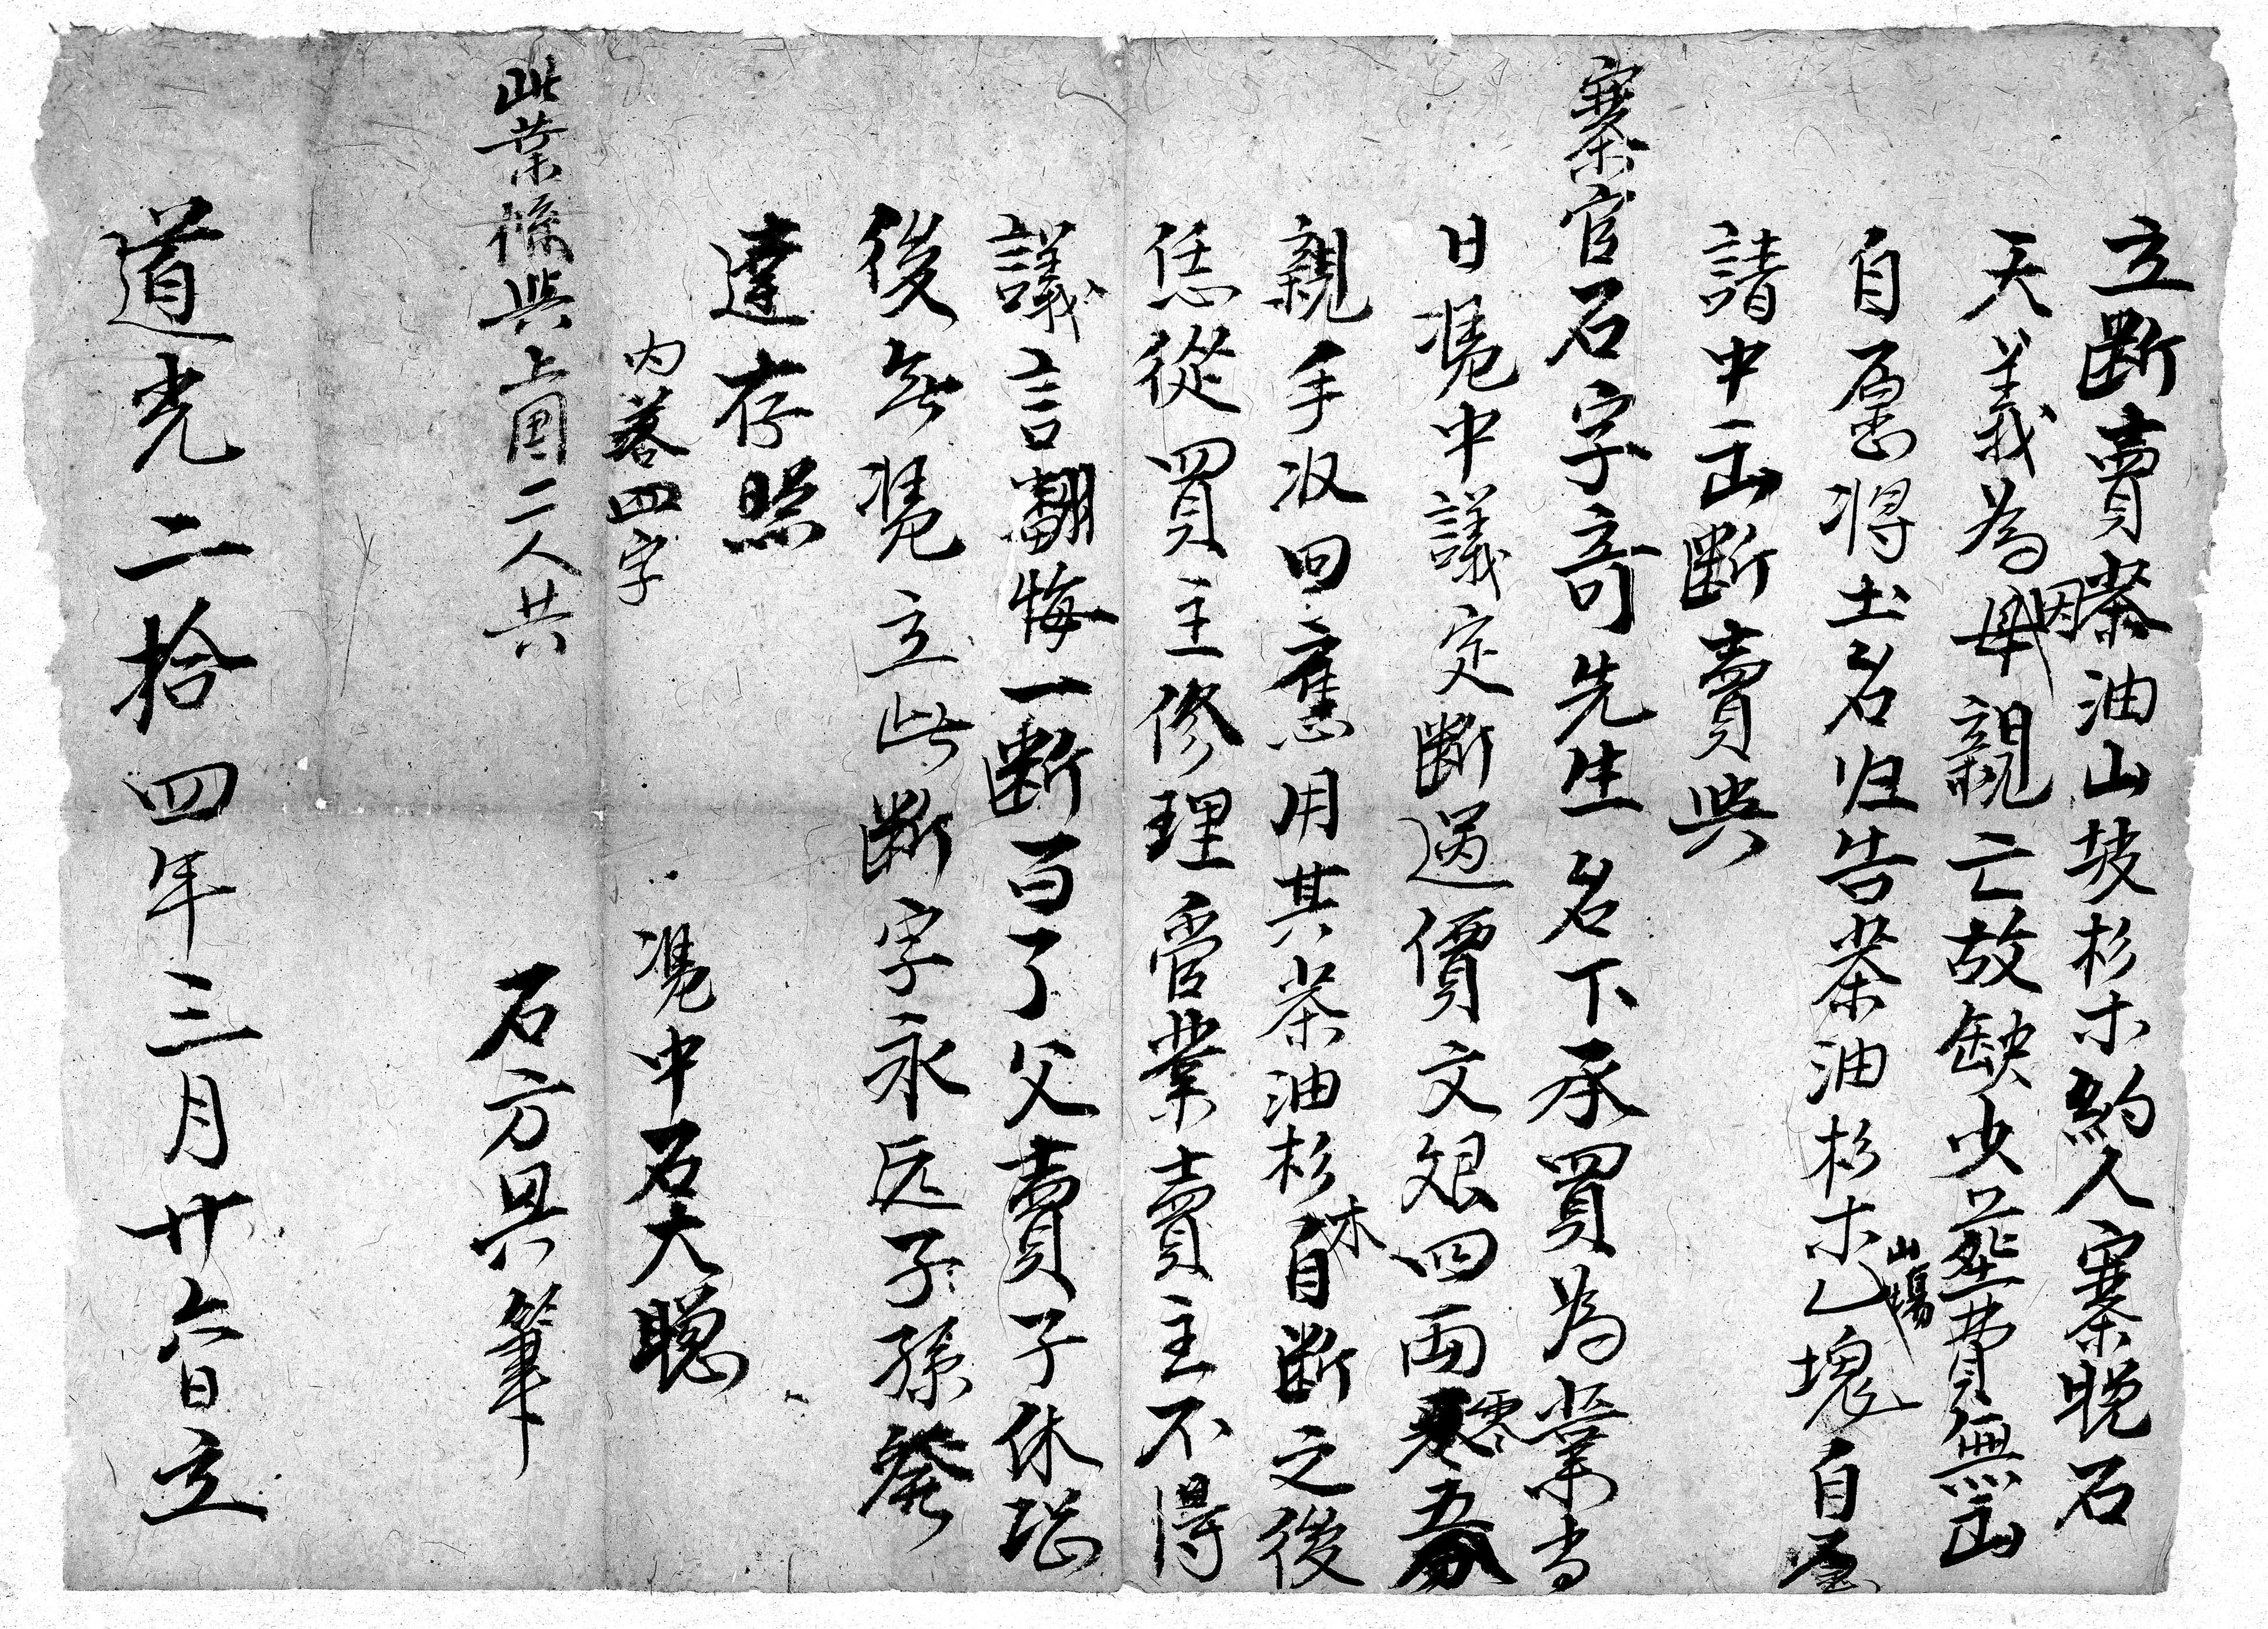 立断賣茶油山坡杉木約人寨晚石
天義為因母親亡故缺少葬費無出
自愿将土名归告茶油杉木山塲乙塊自愿
請中出断賣與
寨官石字奇先生名下承買為業当
日凴中議定断過價文銀四兩零五分
親手收回應用其茶油杉木自断之後
恁從買主修理管業賣主不得
議言翻悔一断百了父賣子休恐
後無凴立此断字永远子孫發
達存照
内落四字
凴中石大聪
此業係與上国二人共
石方具筆
道光二拾四年三月廿六日立